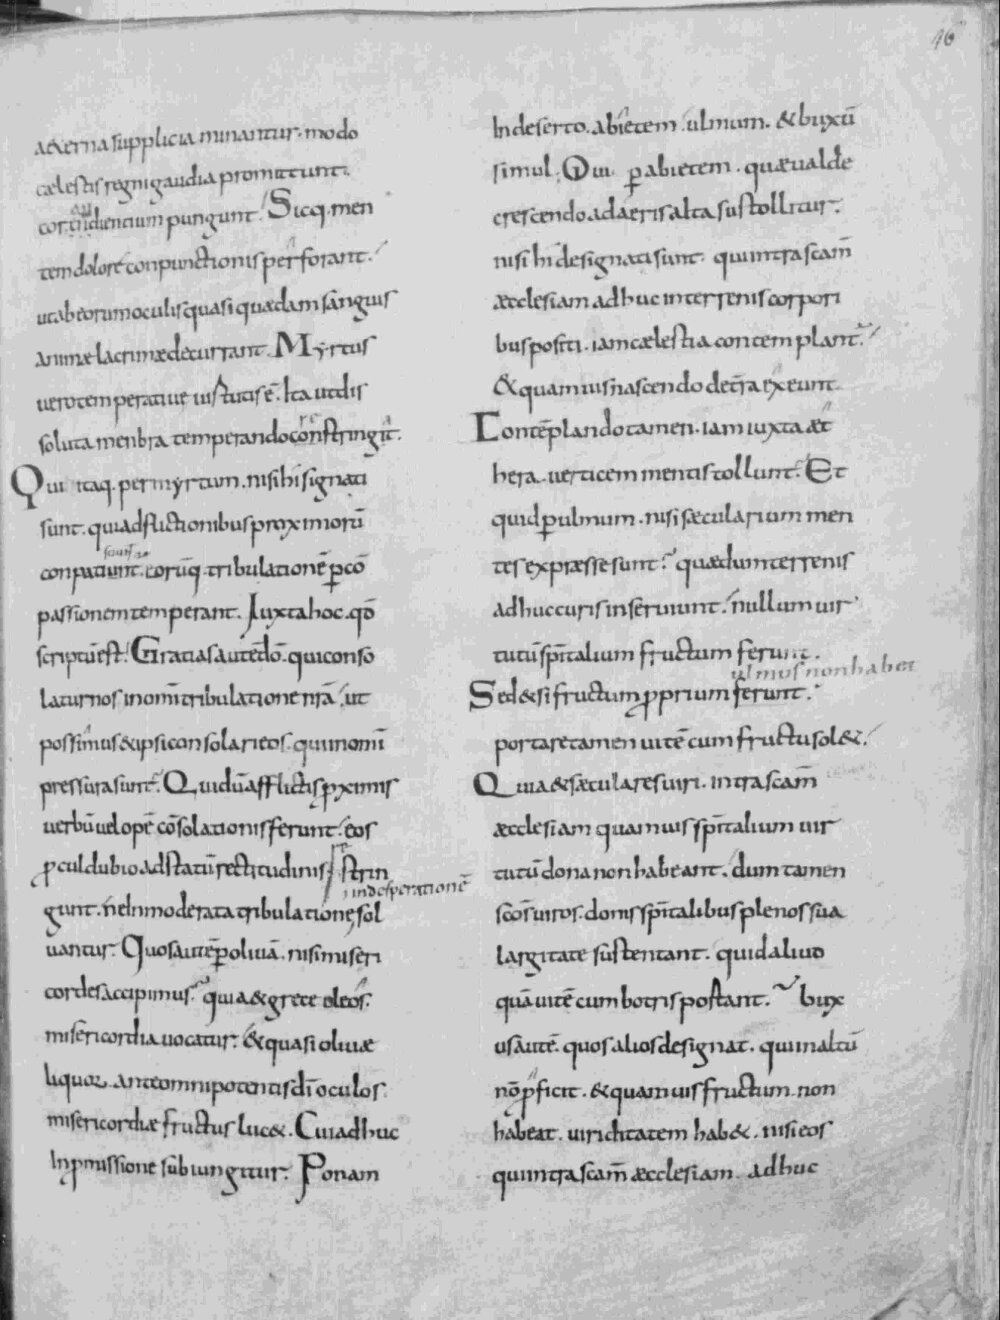 46
aeterna supplicia minantur. modo
cælestis regni gaudia promittunt.
cor audientium pungunt. Sicq. men
tem dolore conpunctionis perforant.
ut ab eorum oculis quasi quædam sanguis
animæ lacrimæ decurrant. Myrtus
vero temperativæ virtutis ē. Ita ut dis
soluta menbra temperando constringit.
Qui itaq. per myrtum. nisi hi signati
sunt. qui adflictionibus proximorū
conpatiunt. eorūq. tribulationē p cō
passionem temperant. Iuxta hoc. qđ
scriptū est. Gratias autē dō. qui conso
latur nos in omi tribulatione nrā. ut
possimus & ipsi consolari eos. qui in omi
pressura sunt. Qui dū afflictis pximis
verbū vel opē cōsolationis ferunt. eos
pculdubio ad statū rectitudinis strin
i in desperationē
gunt. ne inmoderata tribulatione sol
vantur. Quos autē p olivā. nisi miseri
cordes accipimus. quia & grece oleos.
misericordia vocatur. & quasi olivæ
liquor. ante omnipotentis dī oculos
misericordiæ fructus lucet. Cui adhuc
In pmissione subiungitur. Ponam
In deserto. abietem. ulmum. & buxū
simul. Qui p abietem. quæ valde
crescendo ad aeris alta sustollitur.
nisi hi designati sunt. qui intra scam̄
æcclesiam adhuc in terrenis corpori
bus positi. iam cælestia contemplant.
& quamvis nascendo de terra exeunt.
Contēplando tamen. iam iuxta æt
hera. verticem mentis tollunt. Et
quid p ulmum. nisi sæcularium men
tes expræsse sunt? quæ dum terrenis
adhuc curis inserviunt. nullum vir
tutū spītalium fructum ferunt.
ulmus non habet
Sed & si fructum pprium ferunt.
portare tamen vitē cum fructu solet.
Quia & sæculares viri. intra scam̄
æcclesiam quamvis spītalium vir
tutū dona non habeant. dum tamen
scos viros. donis spītalibus plenos sua
largitate sustentant. quid aliud
quā vitē cum botris portant. bux
us autē. quos alios designat. qui in altū
nō pficit. & quamvis fructum non
habeat. viriditatem habet. nisi eos
qui intra scam̄ æcclesiam. adhuc